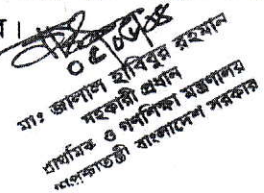 ত।
০৫/০৫/১৪
মাঃ জালাল হাবিবুর রহমান
সহকারী প্রধান
প্রাথমিক ও গণশিক্ষা মন্ত্রণালয়
গণপ্রজাতন্ত্রী বাংলাদেশ সরকার